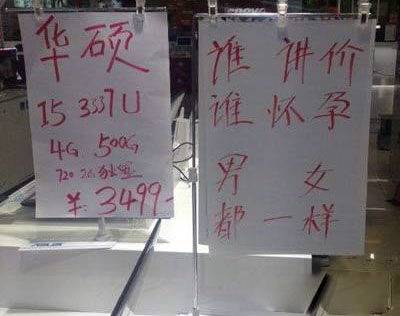 华硕
I5 3337U
4G 500G
720 2G 独显
¥:3499-
谁 讲价
谁怀孕
男 女
都一样
lenovo
ASUS